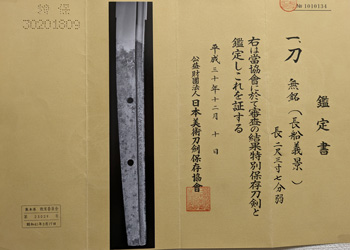 № 1010134
鑑定書
一、刀 無銘(長船義景)
長二尺三寸七分弱
右は當協會に於て審査の結果特別保存刀剣と
鑑定しこれを証する
平成三十年十二月十日
公益財團法人 日本美術刀劍保存協會
J0201809